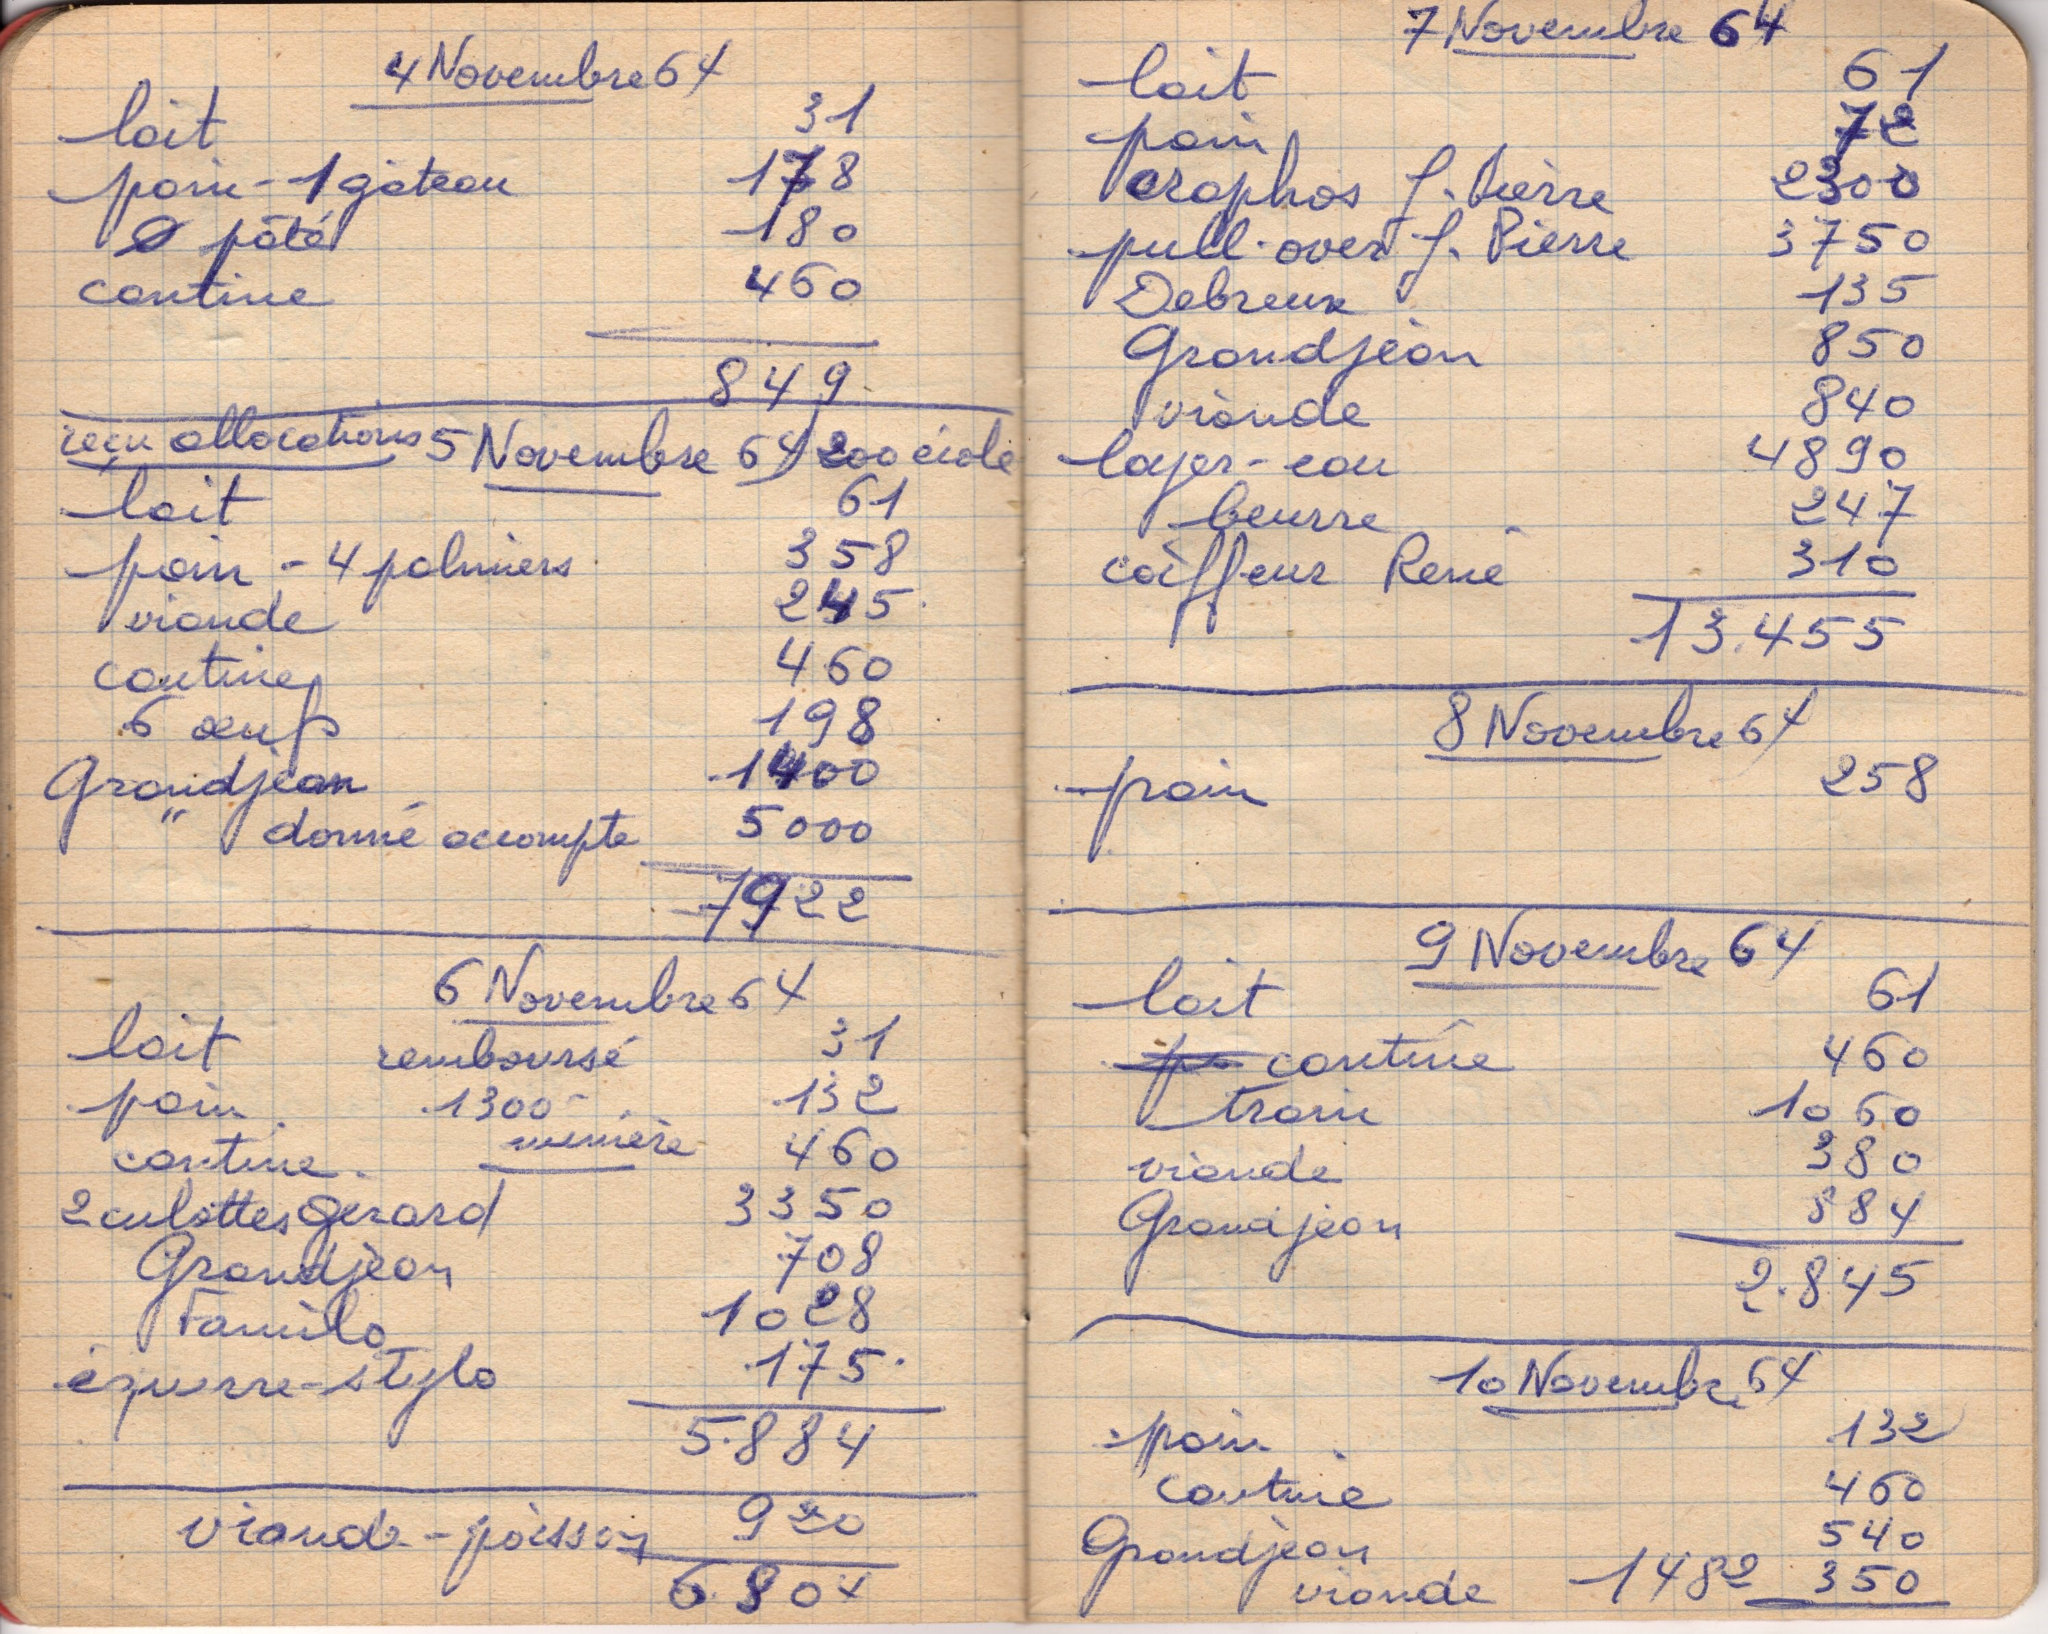 4 Novembre 64
lait 31
pain - 1 gâteau 178
pâté 180
cantine 460
849
reçu allocations 5 Novembre 64 200 école
lait 61
pain - 4 palmiers 358
viande 245
cantine 460
6 œufs 198
Grandjean 1400
" donné accompte 5000
7922
6 Novembre 64
lait remboursé 31
pain 1300 132
cantine minière 460
2 culottes Gérard 3350
Grandjean 708
Familo 1028
équerre - stylo 175
5.884
viande - poisson 920
6.804
7 Novembre 64
lait 61
pain 72
J. Pierre 2300
pull-over J. Pierre 3750
Debreux 135
Grandjean 850
viande 840
loyer - eau 4890
beurre 247
coiffeur René 310
13.455
8 Novembre 64
pain 258
9 Novembre 64
lait 61
cantine 460
train 1060
viande 380
Grandjean 884
2.845
10 Novembre 64
pain 132
cantine 460
Grandjean 540
viande 1482 350